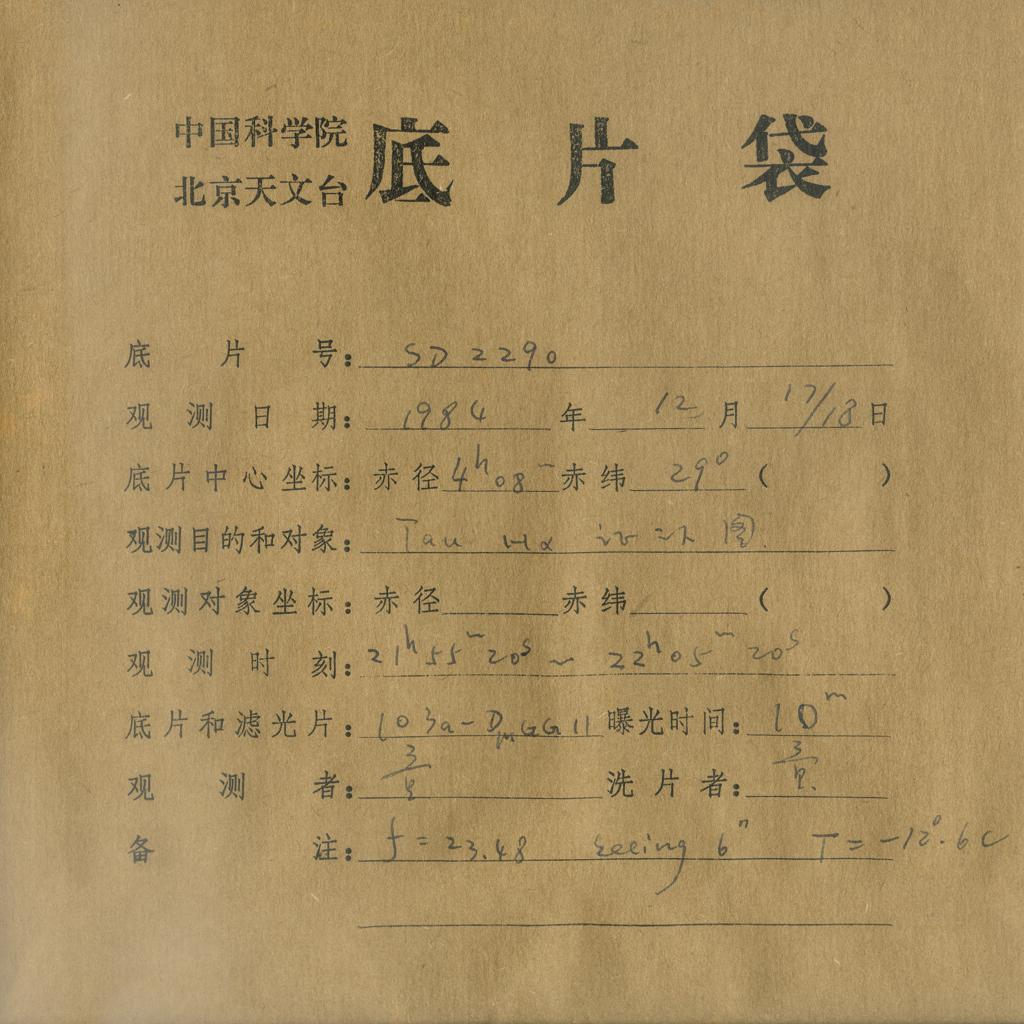 中国科学院
北京天文台
底片袋
底片号: SD2290
观测日期: 1984年12月17/18日
底片中心坐标: 赤径4ʰ08ᵐ赤纬29°( )
观测目的和对象: Tau Hα 证认图
观测对象坐标: 赤径 赤纬 ( )
观测时刻: 21ʰ55ᵐ20ˢ~22ʰ05ᵐ20ˢ
底片和滤光片: 103a-D GG11 曝光时间: 10ᵐ
观测者: 洗片者:
备注: f=23.48 seeing 6" T=-12°.6C